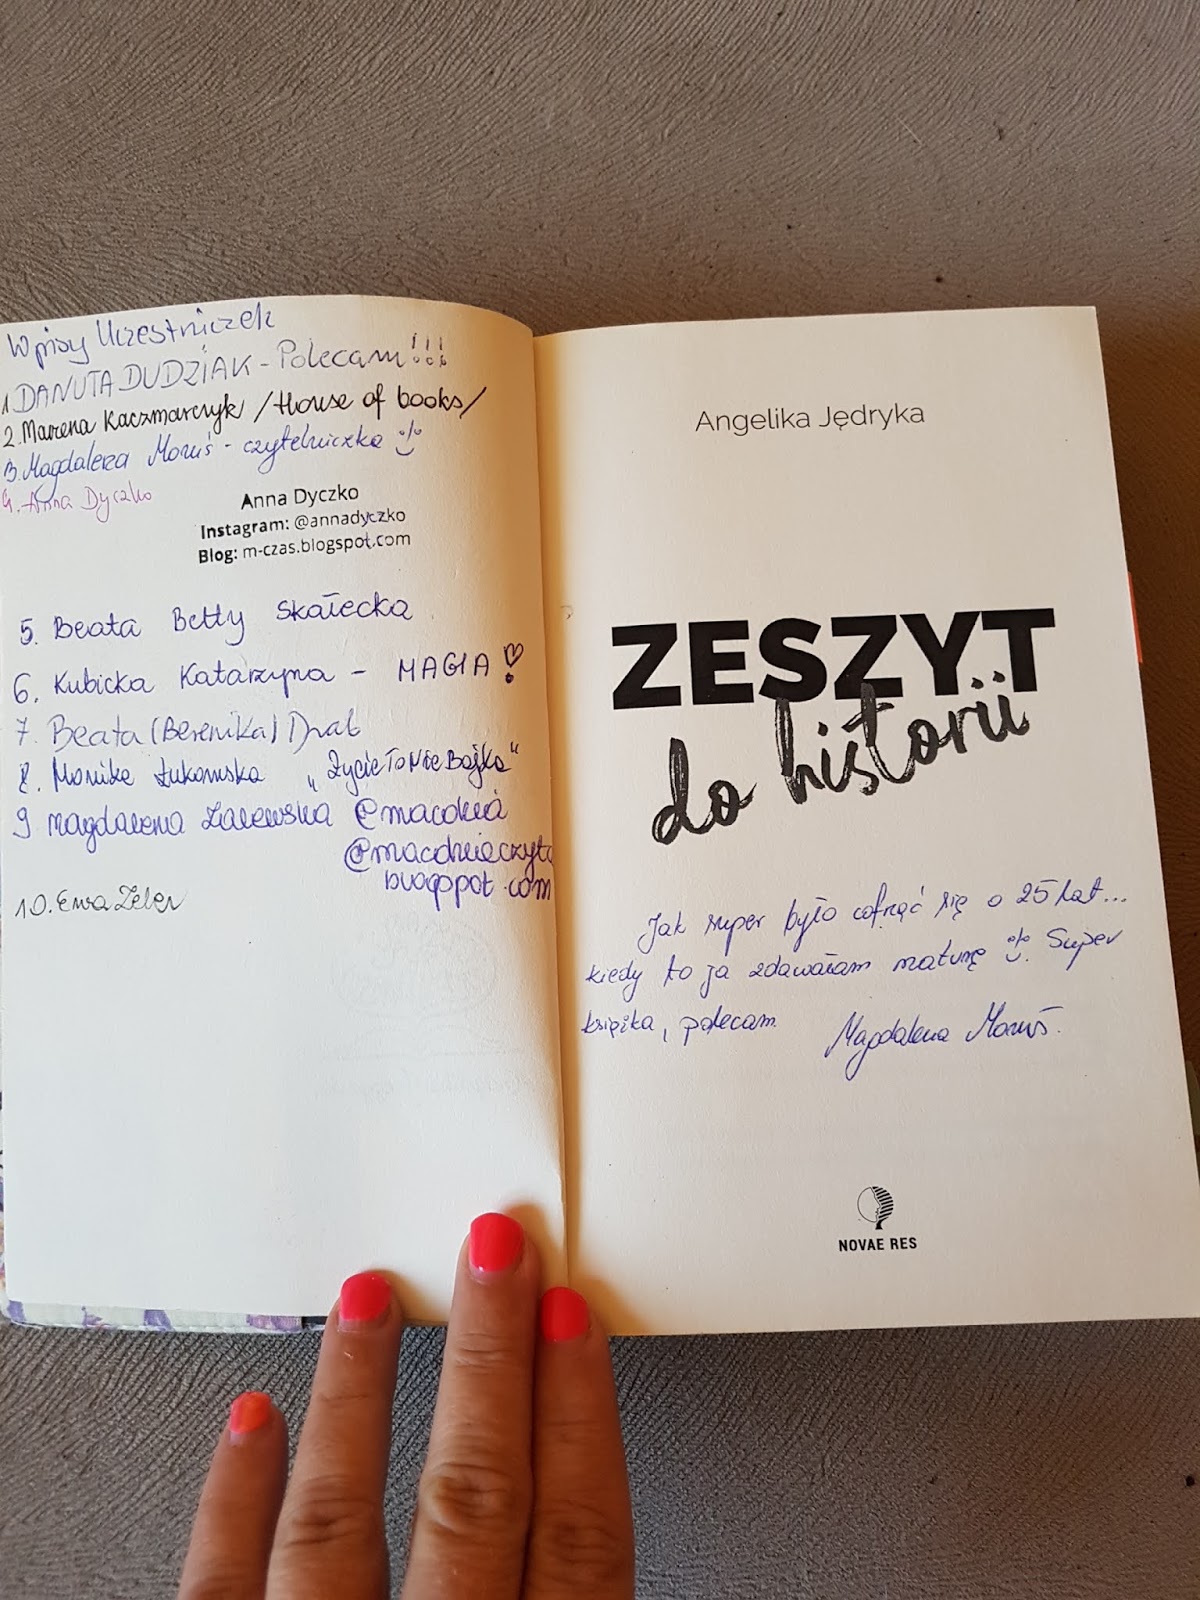 Wpisy Uczestniczek
1. DANUTA DUDZIAK - Polecam!!!
2. Marzena Kaczmarczyk /House of books/
3. Magdalena - czytelniczka
4. Anna Dyczko
Anna Dyczko
Instagram: @annadyczko
Blog: m-czas.blogspot.com
5. Beata Betty Skałecka
6. Kubicka Katarzyna - MAGIA!
7. Beata (Berenika)
8. Monika Łukomska „ŻycieToNieBajka"
9 Magdalena Zalewska
10. Ewa
Angelika Jędryka
ZESZYT
do historii
Jak super było cofnąć się o 25 lat...
kiedy to ja zdawałam maturę Super
książka, polecam Magdalena
NOVAE RES